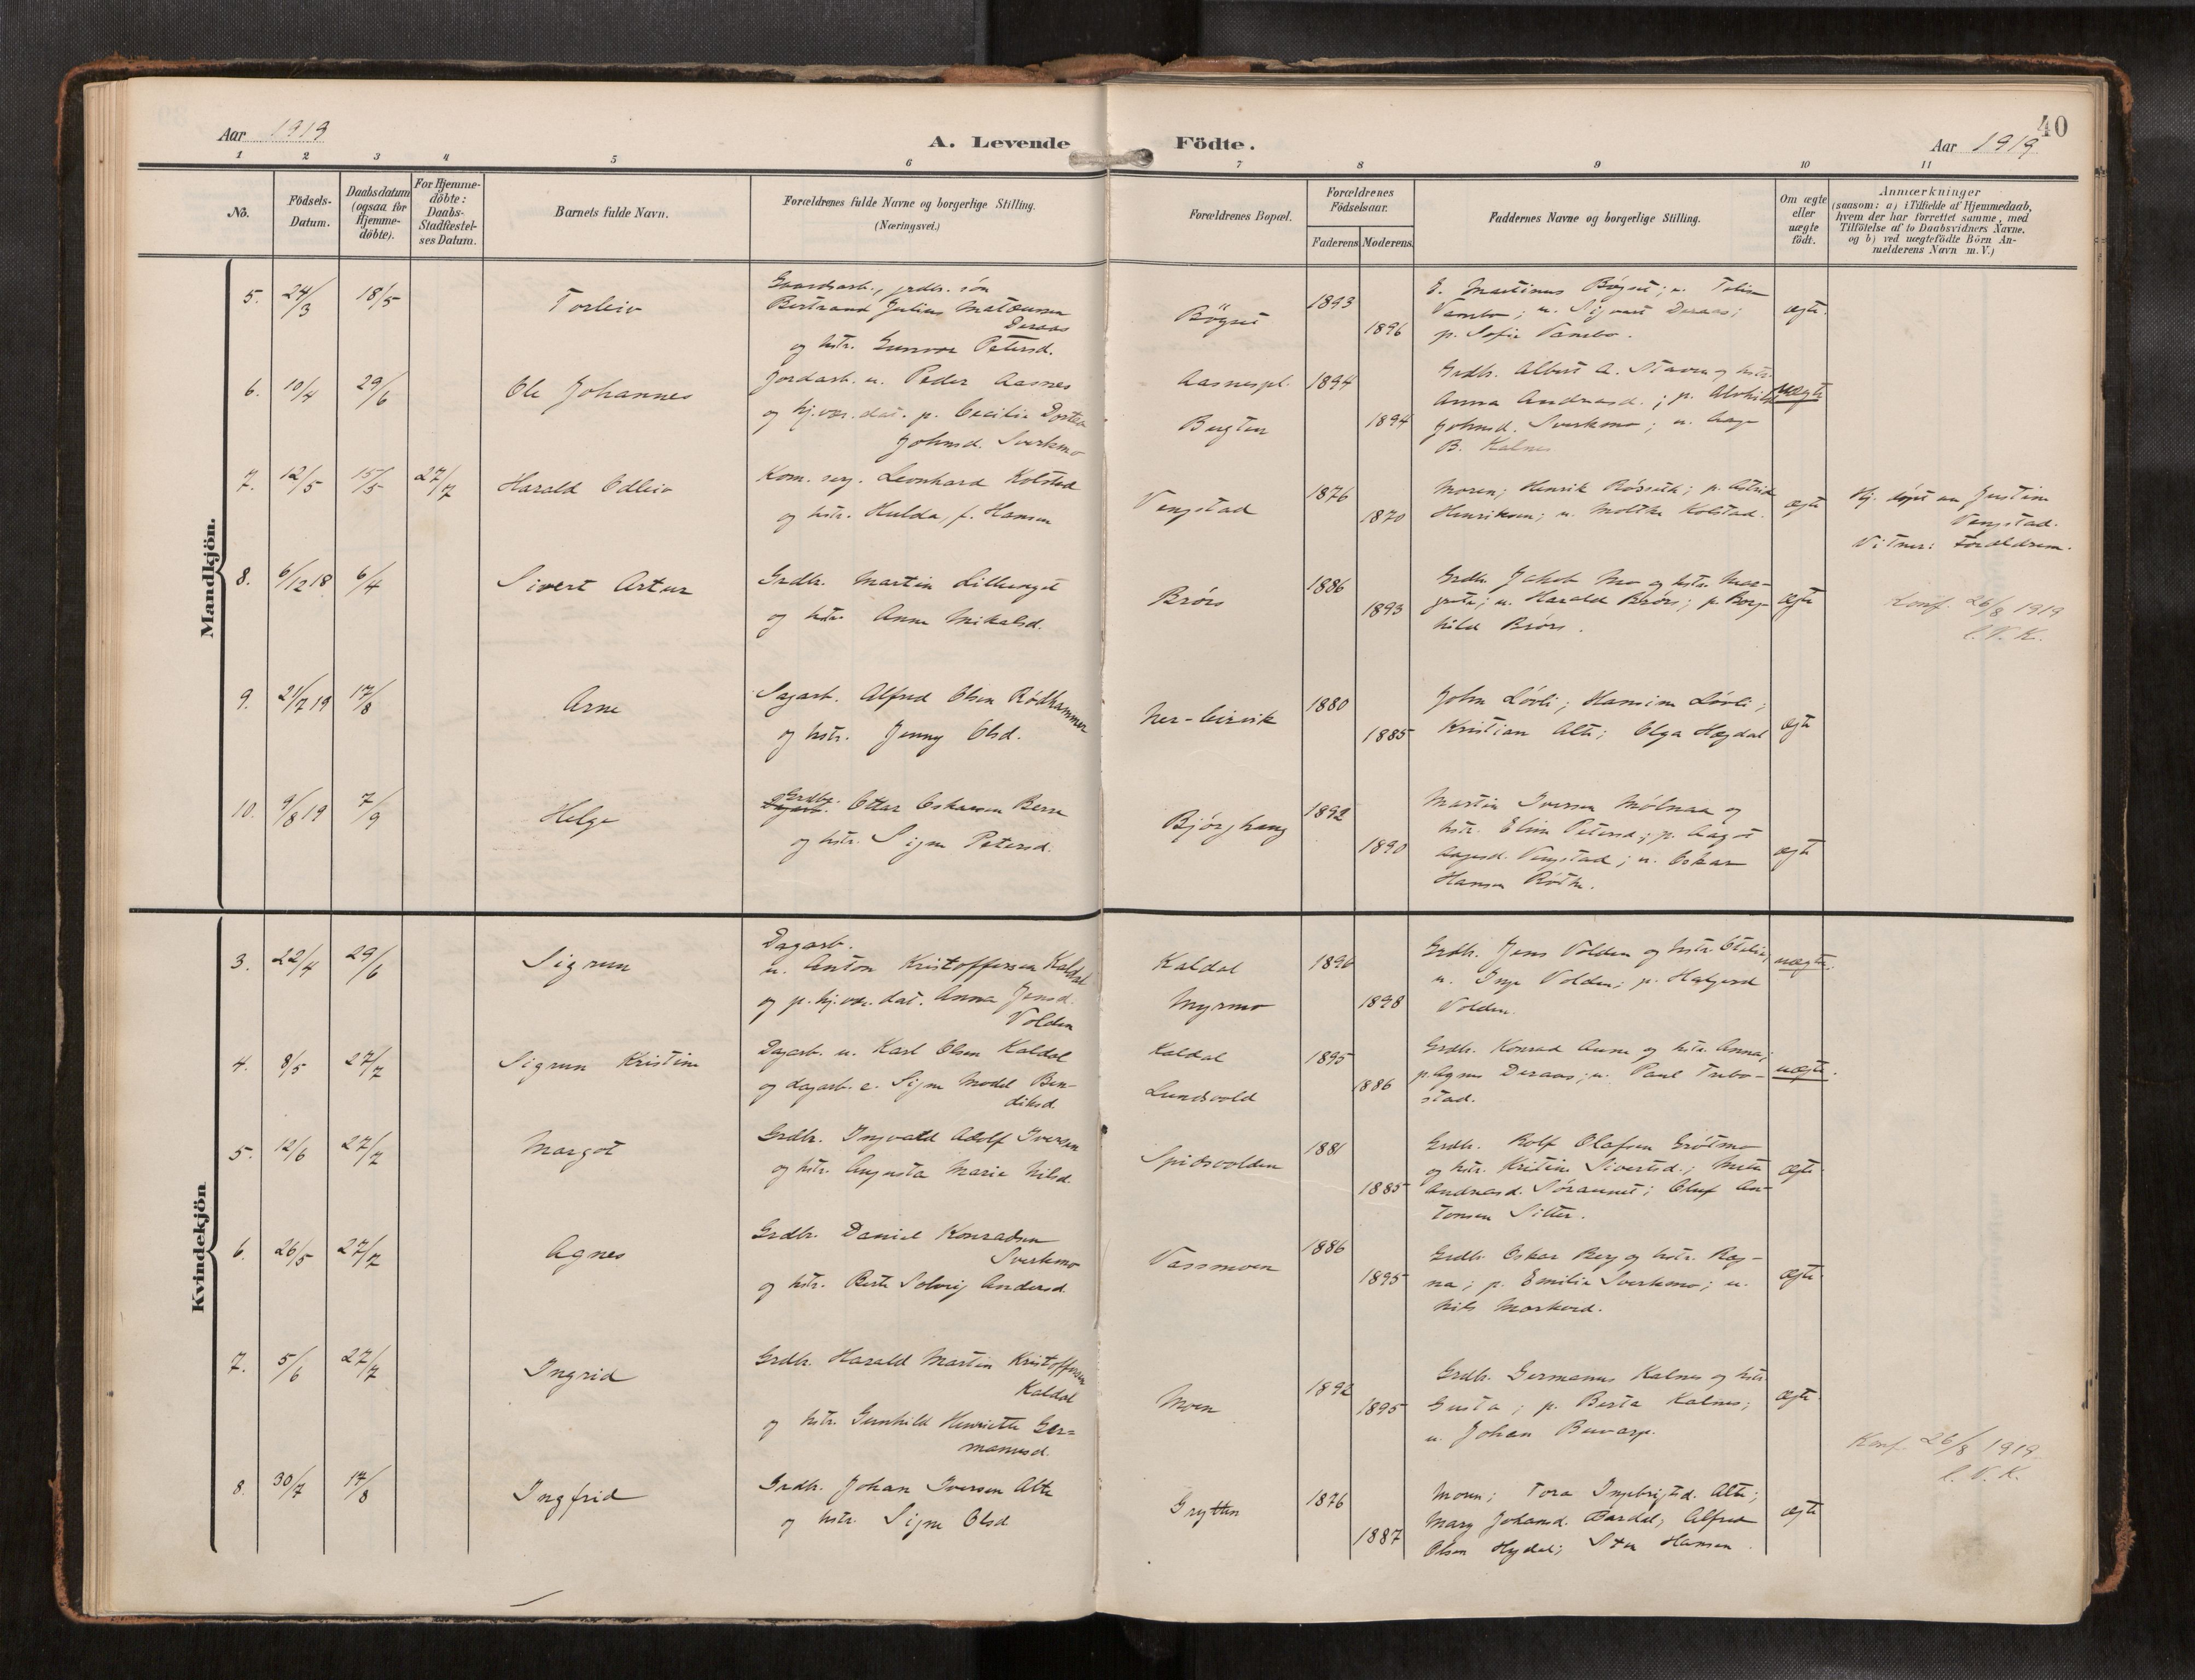 Aar 1919
A. Levende Födte.
40
Aar 1919
1 2 3 4 5 6 7 8 9 10 11
No.
Födsels-Datum.
Daabsdatum (ogsaa for Hjemme-döbte).
For Hjemme-döbte: Daabs-Stadfæstel-ses Datum.
Barnets fulde Navn.
Forældrenes fulde Navne og borgerlige Stilling.
(Næringsvei.)
Forældrenes Bopæl.
Forældrenes Födselsaar.
Faderens Moderens
Faddernes Navne og borgerlige Stilling.
Om ægte eller uægte födt.
Anmærkninger
(saasom: a) i Tilfælde af Hjemmedaab,
hvem der har forrettet samme, med
Tilföielse af to Daabsvidners Navne.
og b) ved uægtefödte Börn An-
melderens Navn m. V.)
Mandkjön.
5. 24/3 18/5 Torleiv
Gaardsarb., grdbr. søn
Bertrand Julius Mateussen
Deraas
og hstr. Gunvor Petersd.
Bögset 1893 1896
Martinus Bögset; u.
Vambo; u. Sigvart Deraas;
p. Sofie Vambo.
ægte.
6. 10/4 29/6 Ole Johannes
Jordarb. u. Peder Aasnes
og hj.vær. dat. p. Cecilie
Johnsd. Sverkmo
Aasnespl. 1894
Bugten 1894
Grdbr. Albert A. Staven og hstr.
Anna Andreasd.; p. Alvhild
Johnsd. Sverkmo; u. Aage
B. Kalnes
uægte
7. 12/5 15/5 27/7 Harald Odleiv
Kom. serg. Leonhard Kolstad
og hstr. Hulda, f. Hansen
Vengstad 1876 1870
Moren; Henrik; p. Astrid
Henriksen; u. Moltke Kolstad.
ægte
Hj. døpt av Justine
Vengstad.
Vitner: Forældrene.
8. 6/12 18 6/4 Sivert Artur
Grdbr. Martin Lilleenget
og hstr. Anna Mikalsd.
Brørs 1886 1893
Grdbr. Jakob Mo og hstr. Mar-
grete; u. Harald Brørs; p. Borg-
hild Brørs.
ægte
Konf. 26/8 1919
C. V. K.
9. 21/7 19 17/8 Arne
Sagarb. Alfred Olsen Rødhammer
og hstr. Jenny Olsd.
Ner-Leirvik 1880 1885
John Løvli; Hansine Løvli;
Kristian Alte; Olga Hegdal
ægte
10. 9/8 19 7/9 Helge
Grdbr.
Ottar Oskarsen Berre
og hstr. Signe Petersd.
Bjørghaug 1892 1890
Martin Iversen Mølnaa og
hstr. Eline Petersd.; p. Aagot
Aagesd. Vengstad; u. Oskar
Hansen
ægte
Kvindekjön
3. 22/4 29/6 Sigrun
Dagarb.
u. Anton Kristoffersen Kaldal
og p. hj.vær. dat. Anna Jensd.
Volden
Kaldal 1896
Myrmo 1898
Grdbr. Jens Volden og hstr. Oteli
u. Inge Volden; p. Halgerd
Volden.
uægte.
4. 8/5 27/7 Sigrun Kristine
Dagarb. u. Karl Olsen Kaldal
og dagarb. e. Signe Model Ben-
diksd.
Kaldal 1895
Lundsvold 1886
Grdbr. Konrad Aune og hstr. Anna;
p. Agnes Deraas; u. Paul Trebo-
stad.
uægte.
5. 12/6 27/7 Margot
Grdbr. Ingvald Adolf Iversen
og hstr. Augusta Marie Nilsd.
Spidsvolden 1881 1885
Grdbr. Rolf Olafsen Grötmo
og hstr. Kristine Sivertsd.; Mette
Andreasd. Søraunet; Oluf An-
tonsen Sitter.
ægte
6. 26/5 27/7 Agnes
Grdbr. Daniel Konradsen
Sverkmo
og hstr. Berte Solveig Andersd.
Vassmoen 1886 1895
Grdbr. Oskar Berg og hstr. Rag-
na; p. Emilie Sverkmo; u.
Nils Morkved.
ægte.
7. 5/6 27/7 Ingrid
Grdbr. Harald Martin Kristoffersen
Kaldal
og hstr. Gunhild Henriette Ger=
manusd.
Moen 1892 1895
Grdbr. Germanus Kalnes og hstr.
Gusta; p. Berta Kalnes;
u. Johan Buvarp.
ægte.
Konf. 26/8 1919
C. V. K.
8. 30/7 17/8 Ingfrid
Grdbr. Johan Iversen Alte
og hstr. Signe Olsd
Grytten 1876 1887
Moren; Tora Ingebrigtsd. Alte;
Mary Johansd. Bardal; Alfred
Olsen; Sten Hansen.
ægte